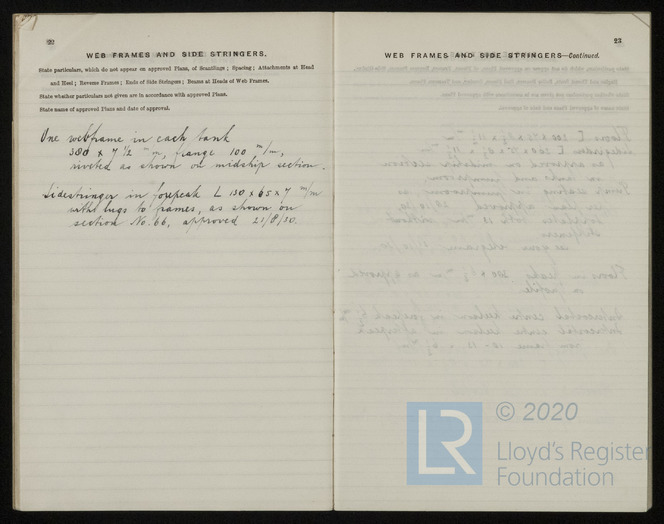 22
WEB FRAMES AND SIDE STRINGERS.
State particulars, which do not appear on approved Plans, of Scantlings; Spacing; Attachments at Head
and Heel; Reverse Frames; Ends of Side Stringers; Beams at Heads of Web Frames.
State whether particulars not given are in accordance with approved Plans.
State name of approved Plans and date of approval.
One webframe in each tank
380 x 7 1/2 m/m, flange 100 m/m,
riveted as shown on midship section.
Sidestringer in forepeak L 130 x 65 x 7 m/m
with lugs to frames, as shown on
section No. 66, approved 21/8/30.
23
WEB FRAMES AND SIDE STRINGERS—Continued.
LR
© 2020
Lloyd's Register
Foundation